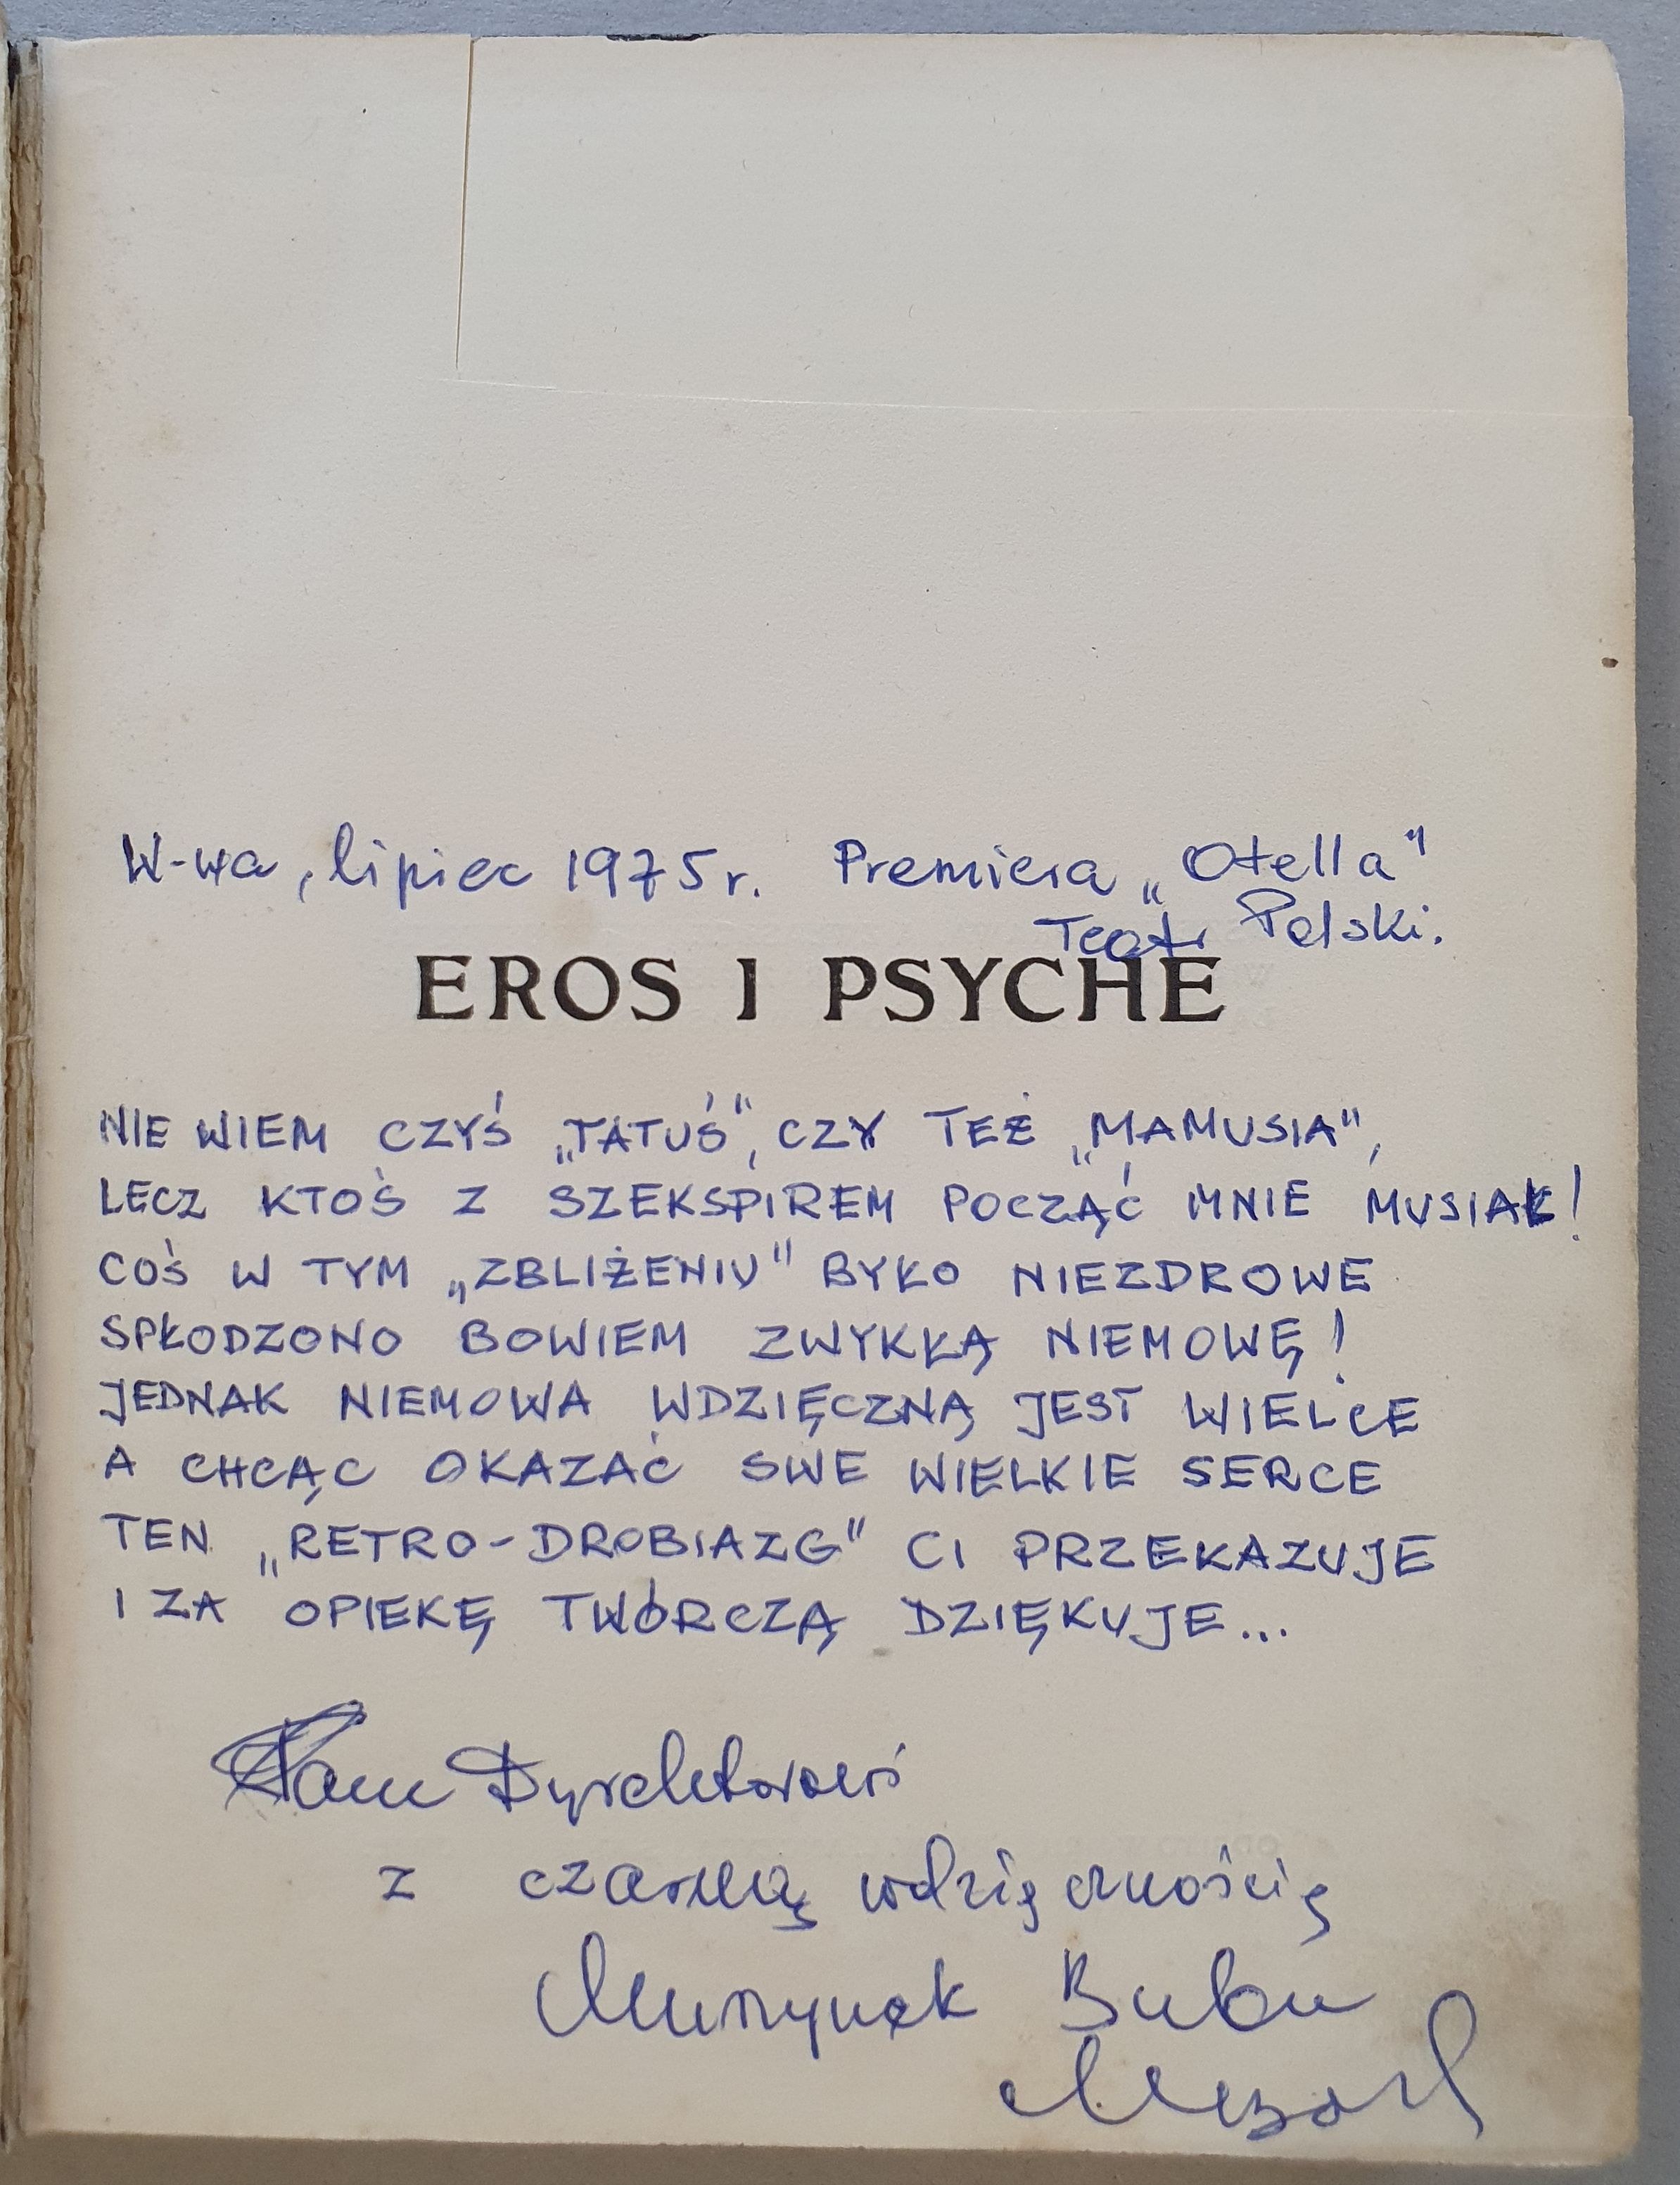 W-wa, lipiec 1975 r. Premiera „Otella"
Teatr Polski.
EROS I PSYCHE
NIE WIEM CZYŚ „TATUŚ", CZY TEŻ „MAMUSIA",
LECZ KTOŚ Z SZEKSPIREM POCZĄĆ MNIE MUSIAŁ!
COŚ W TYM „ZBLIŻENIU" BYŁO NIEZDROWE
SPŁODZONO BOWIEM ZWYKŁĄ NIEMOWĘ!
JEDNAK NIEMOWA WDZIĘCZNĄ JEST WIELCE
A CHCĄC OKAZAĆ SWE WIELKIE SERCE
TEN „RETRO-DROBIAZG" CI PRZEKAZUJE
I ZA OPIEKĘ TWÓRCZĄ DZIĘKUJE...
Panu Dyrektorowi
z czarną wdzięcznością
Murzynek Bubu